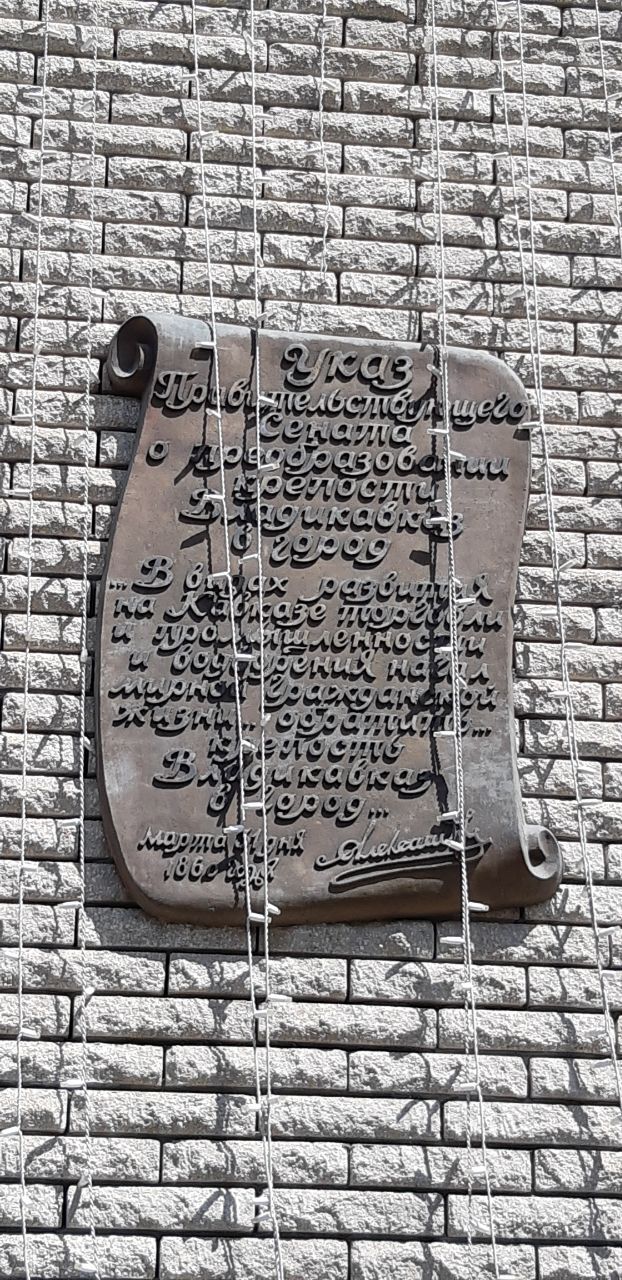 Указ
Правительствующего
Сената
о преобразовании
крепости
Владикавказ
в город
„В видах развития
на Кавказе торговли
и промышленности
и водворения начал
мирной гражданской
жизни... обратить...
крепость
Владикавказ
в город...
марта 31 дня
186 года
Александр